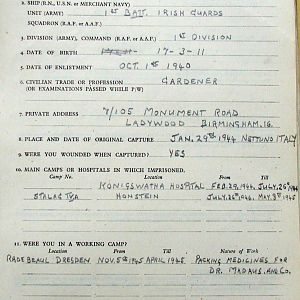 2. SHIP (R.N., U.S.N. OR MERCHANT NAVY)
UNIT (ARMY) 1ST BATT. IRISH GUARDS
SQUADRON (R.A.F. or A.A.F.)
3. DIVISION (ARMY), COMMAND (R.A.F. or A.A.F.) 1ST DIVISION
4. DATE OF BIRTH 17-3-11
5. DATE OF ENLISTMENT OCT. 1ST 1940
6. CIVILIAN TRADE OR PROFESSION GARDENER
(OR EXAMINATIONS PASSED WHILE P/W)
7. PRIVATE ADDRESS 7/105 MONUMENT ROAD
LADYWOOD BIRMINGHAM.16.
8. PLACE AND DATE OF ORIGINAL CAPTURE JAN. 29TH 1944 NETTUNO ITALY
9. WERE YOU WOUNDED WHEN CAPTURED? YES
10. MAIN CAMPS OR HOSPITALS IN WHICH IMPRISONED.
Camp No. Location From Till
KONIGSWATHA HOSPITAL FEB. 29. 1944 JULY. 26TH 1944
STALAG HOHSTEIN JULY. 26TH 1944. MAY. 8TH 1945
11. WERE YOU IN A WORKING CAMP?
Location From Till Nature of Work
RADEBEAUL DRESDEN NOV. 5TH 1945 APRIL 1945. PACKING MEDICINES FOR
DR. MADAUS. AND CO.